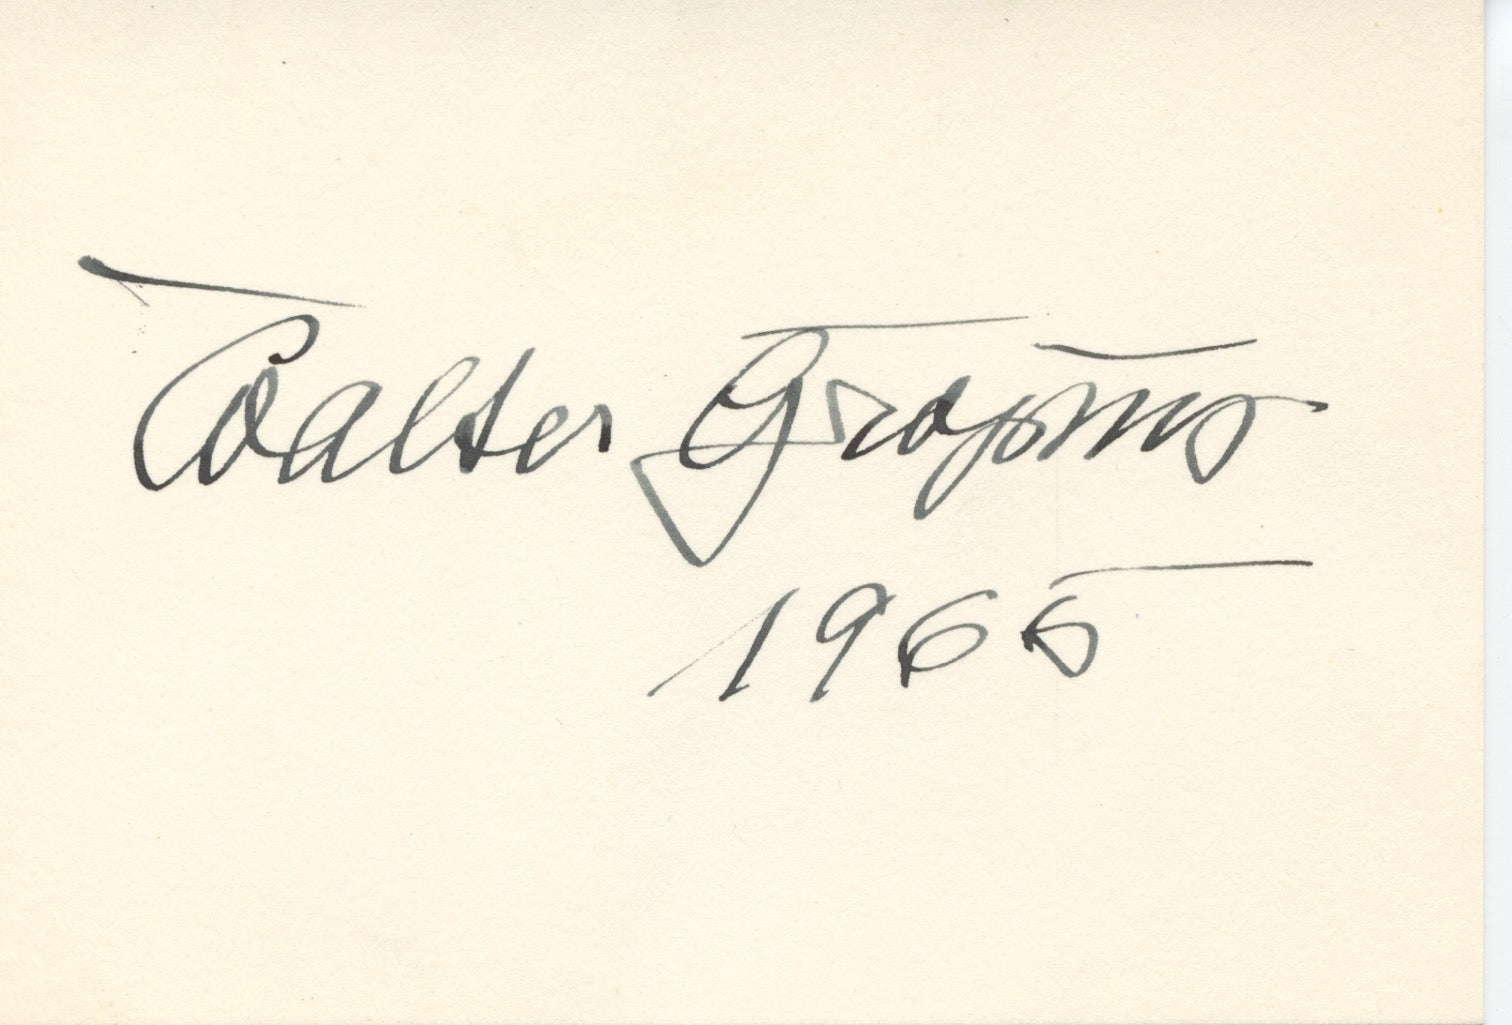 Walter Gropius
1965